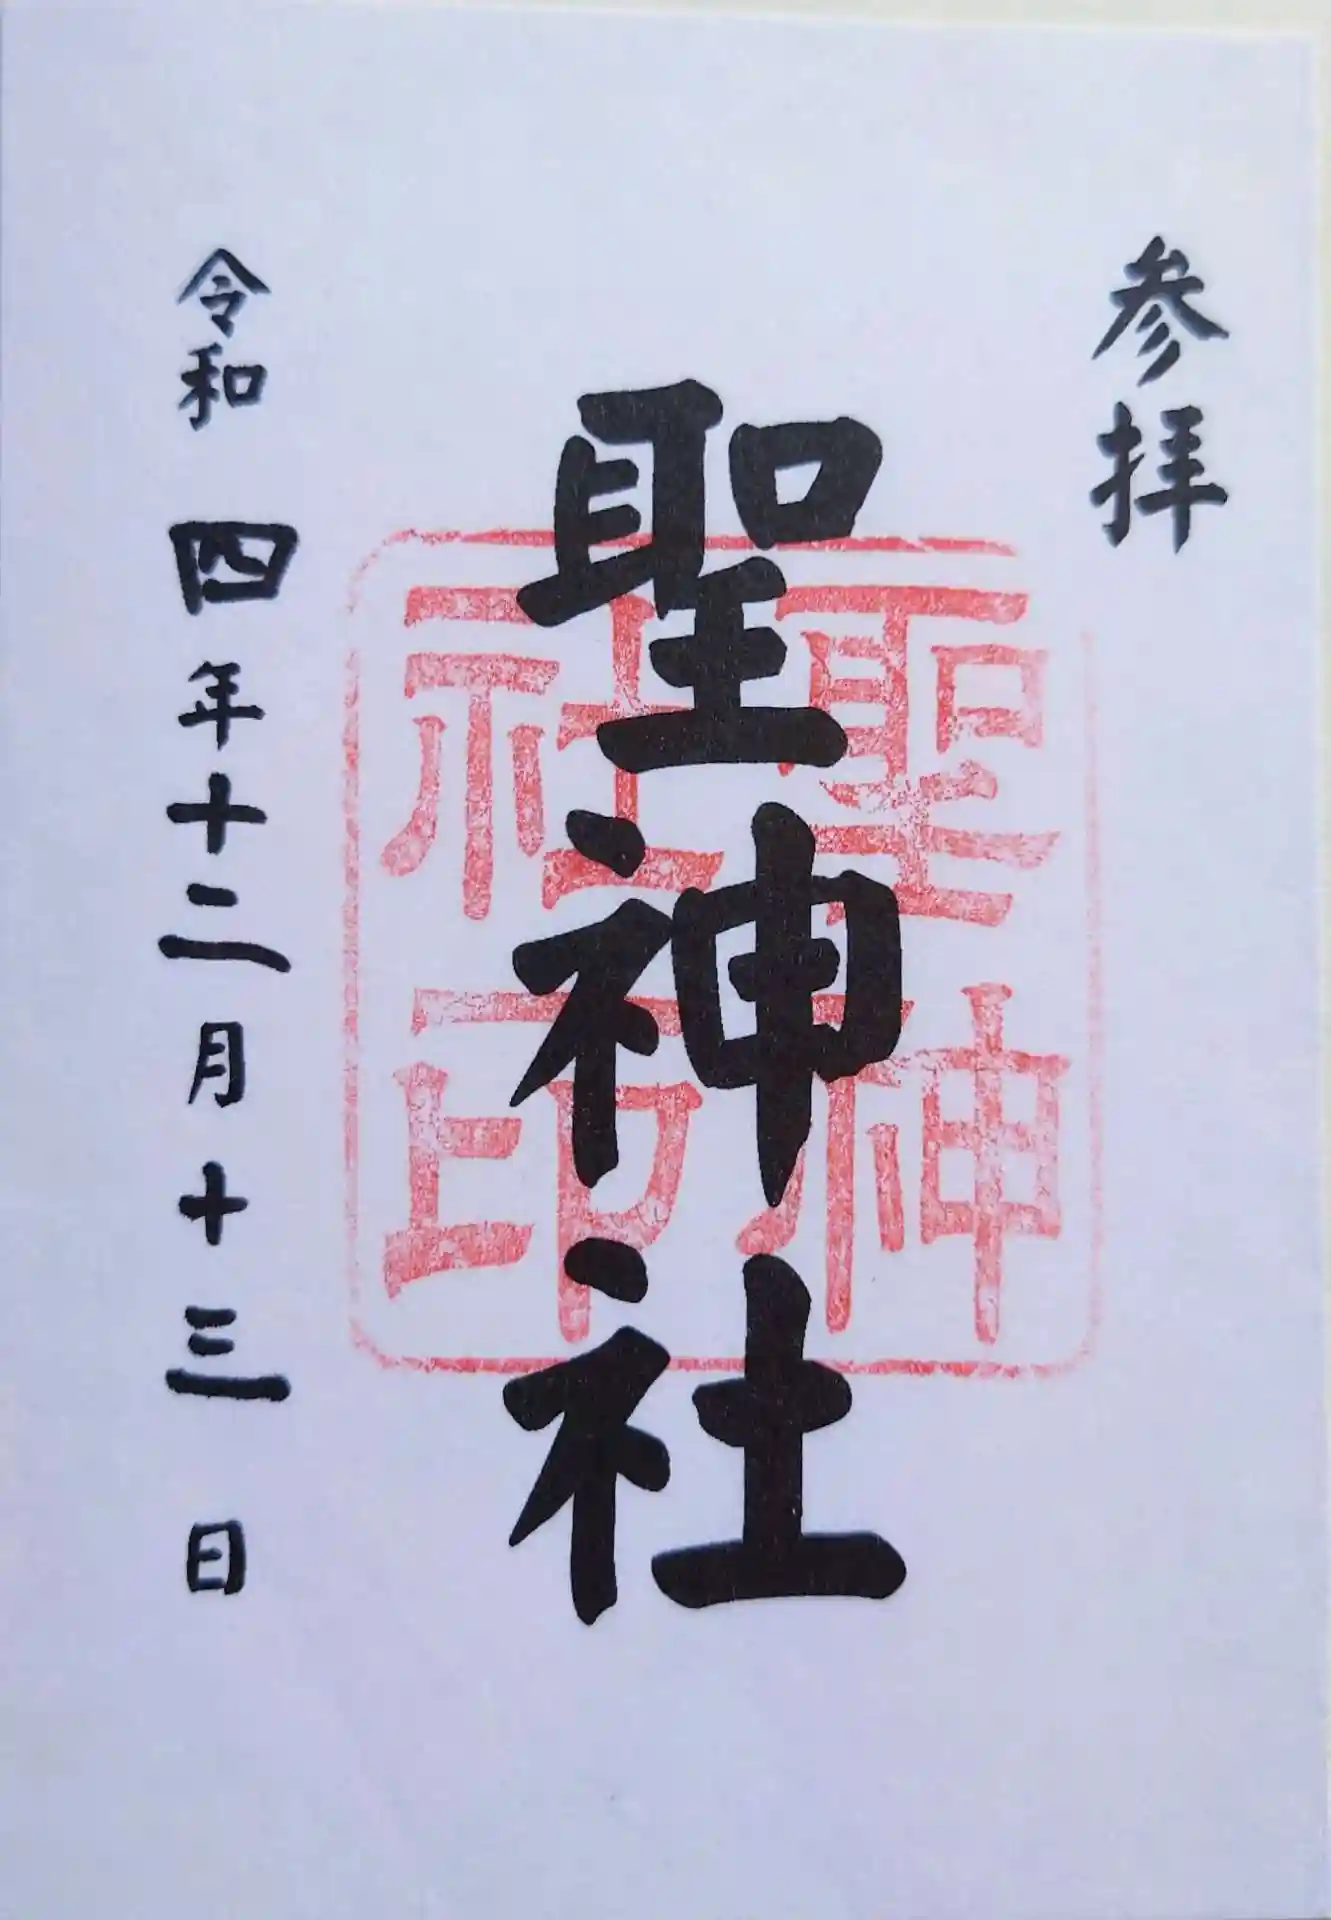 参拝
聖神社
聖神
社印
令和四年十二月十三日